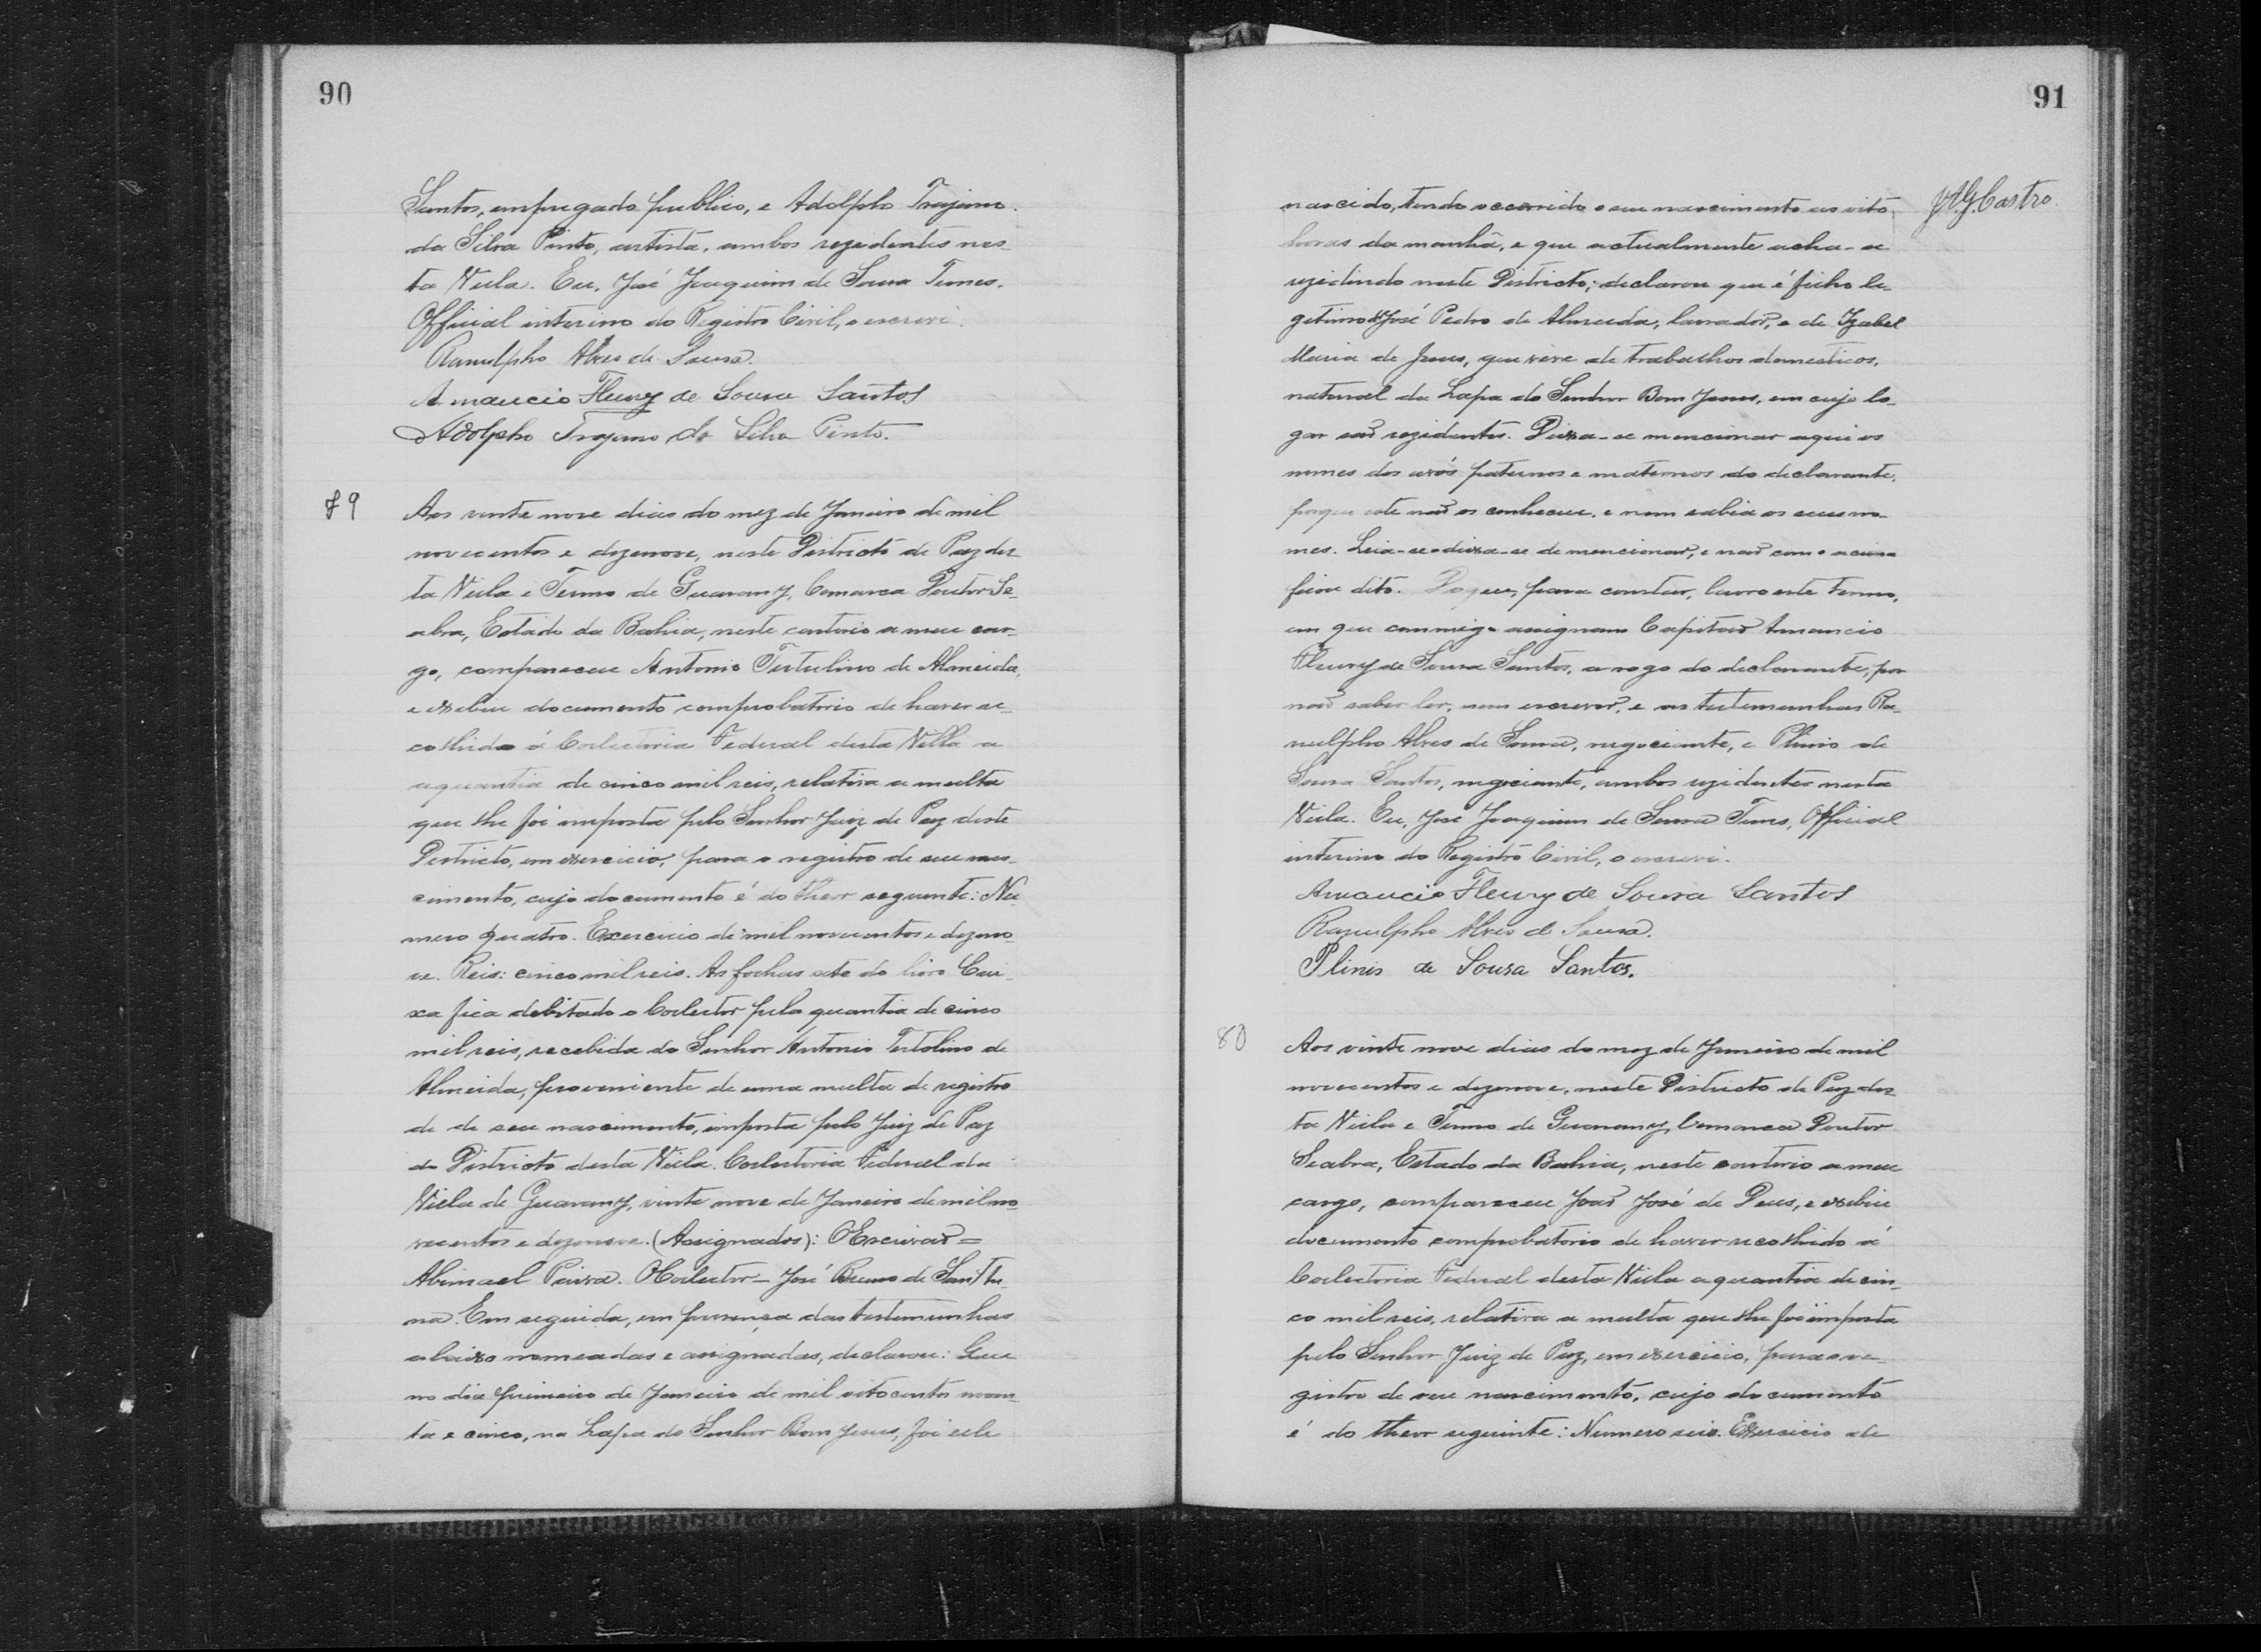 90
Santos, empregado publico, e Adolpho Trajano
da Silva Pinto, artista, ambos rezedentes nes-
ta Villa. Eu, José Joaquim de Sousa Tunes,
Official interino do Registro Civil, o escrevi.
Ranulpho Alves de Sousa.
Amancio Fleury de Sousa Santos
Adolpho Trajano da Silva Pinto.
79
Aos vinte nove dias do mez de Janeiro de mil
novecentos e dezenove, neste Districto de Paz des-
ta Villa e Termo de Guarany, Comarca Doutor Se-
abra, Estado da Bahia, neste cartorio a meu car-
go, compareceu Antonio Tertulino de Almeida,
e exibiu documento comprobatorio de haver re-
colhido á Collectoria Federal desta Villa a
a quantia de cinco mil reis, relativa a multa
que lhe foi imposta pelo Senhor Juiz de Paz deste
Districto, em exercicio, para o registro de seu nas-
cimento, cujo documento é do theor seguinte: Nu-
mero quatro. Exercicio de mil novecentos e dezeno-
ve. Reis: cinco mil reis. As folhas sete do livro Cai-
xa fica debitado o Collector pela quantia de cinco
mil reis, recebida do Senhor Antonio Tertolino de
Almeida, proveniente de uma multa de registro
de de seu nascimento, imposta pelo Juiz de Paz
do Districto desta Villa. Collectoria Federal da
Villa de Guarany, vinte nove de Janeiro de mil no-
vecentos e dezenove. (Assignados): O Escrivaõ =
Abimael Paiva. O Collector - José Bruno de Sant'An-
na. Em seguida, em presença das testemunhas
abaixo nomeadas e assignadas, declarou: Que
no dia primeiro de Janeiro de mil oitocentos noven-
ta e cinco, na Lapa do Senhor Bom Jesus, foi elle
91
J.A.G.Castro.
nascido, tendo occorrido o seu nascimento as oito
horas da manhã, e que actualmente acha-se
rezidindo neste Districto; declarou que é filho le-
getimo de José Pedro de Almeida, lavrador, e de Izabel
Maria de Jesus, que vive de trabalhos domesticos,
natural da Lapa do Senhor Bom Jesus, em cujo lo-
gar saõ rezidentes. Deixa-se mencionar aqui os
nomes dos avós paternos e maternos do declarante,
porque este naõ os conheceu, e nem sabia os seus no-
mes. Leia-se: deixa-se de mencionar, e naõ como acima
ficou dito. Do que, para constar, lavro este termo,
em que commigo assignam Capitaõ Amancio
Fleury de Sousa Santos, a rogo do declarante, por
naõ saber ler, nem escrever, e as testemunhas Ra-
nulpho Alves de Sousa, negociante, e Plinio de
Sousa Santos, negociante, ambos rezidentes nesta
Villa. Eu, José Joaquim de Sousa Tunes, Official
interino do Registro Civil, o escrevi.
Amancio Fleury de Sousa Santos
Ranulpho Alves de Sousa.
Plinio de Sousa Santos.
80
Aos vinte nove dias do mez de Janeiro de mil
novecentos e dezenove, neste Districto de Paz des-
ta Villa e Termo de Guarany, Comarca Doutor
Seabra, Estado da Bahia, neste cartorio a meu
cargo, compareceu Joaõ José de Deus, e exibiu
documento comprobatorio de haver recolhido á
Collectoria Federal desta Villa a quantia de cin-
co mil reis, relativa a multa que lhe foi imposta
pelo Senhor Juiz de Paz, em exercicio, para o re-
gistro de seu nascimento, cujo documento
é do theor seguinte: Numero seis. Exercicio de